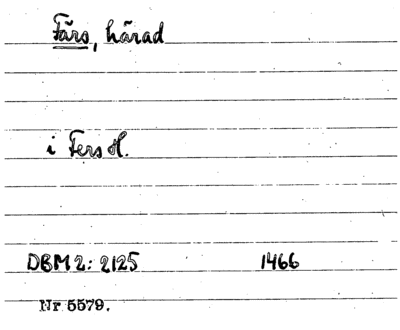 Färs, härad
i Fers H.
DBM 2: 2125 1466
Nr 5579.